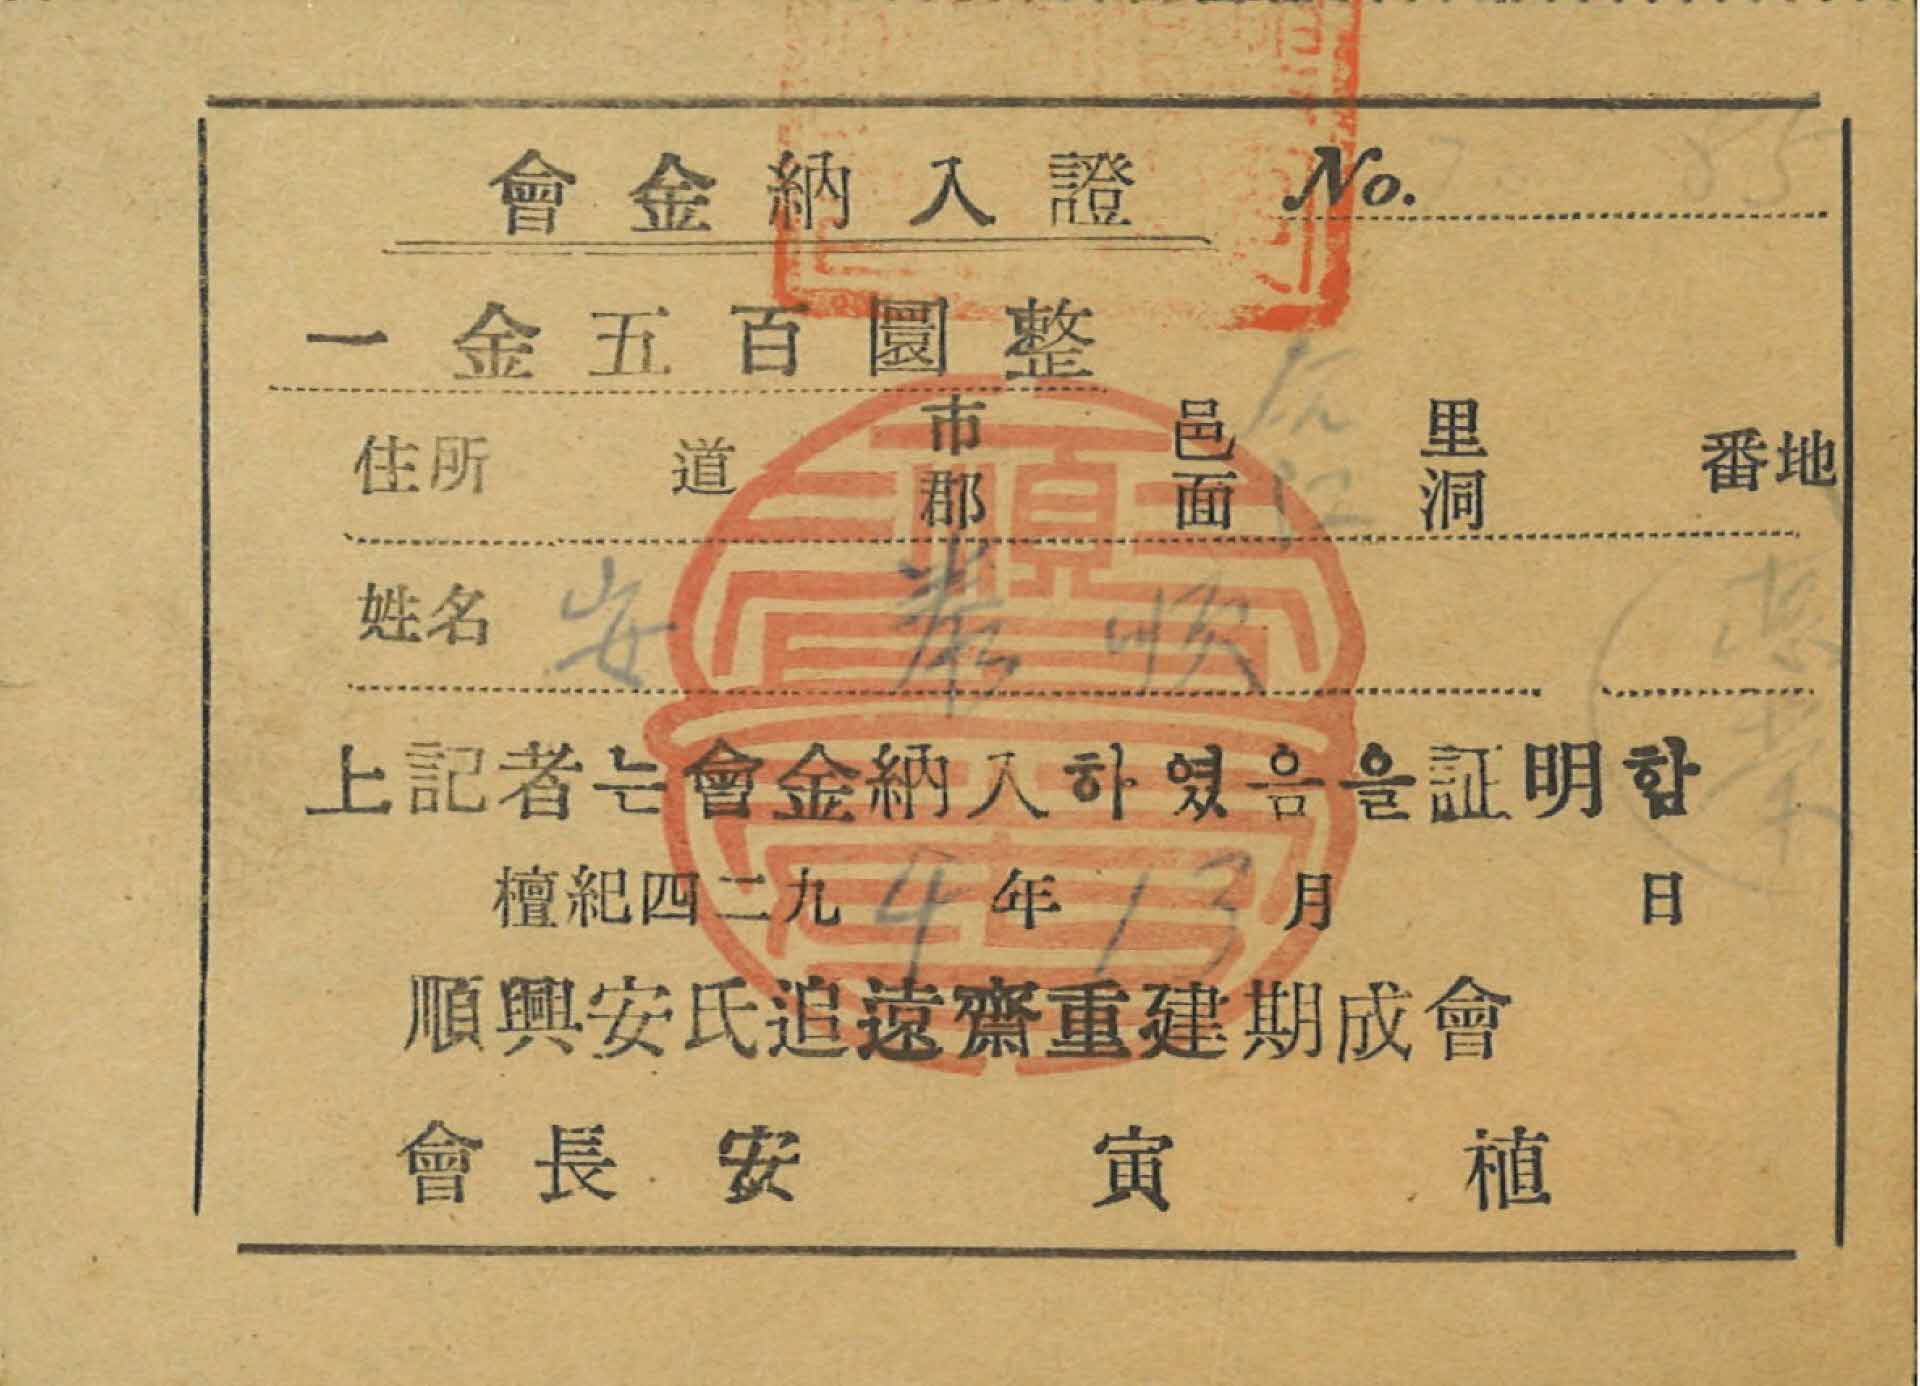 會金納入證 No. 85
一金五百圜整
住所 道 市郡 邑面 里洞 番地
姓名 安 順
上記者는會金納入하였음을証明함
檀紀四二九4年 13月 日
順興安氏追遠齋重建期成會
會長 安寅植